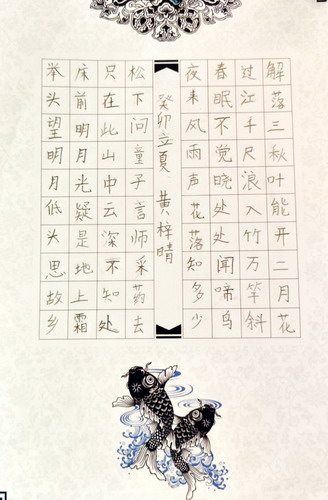 解落三秋叶能开二月花
过江千尺浪入竹万竿斜
春眠不觉晓处处闻啼鸟
夜来风雨声花落知多少
癸卯立夏 黄梓晴
松下问童子言师采药去
只在此山中云深不知处
床前明月光疑是地上霜
举头望明月低头思故乡